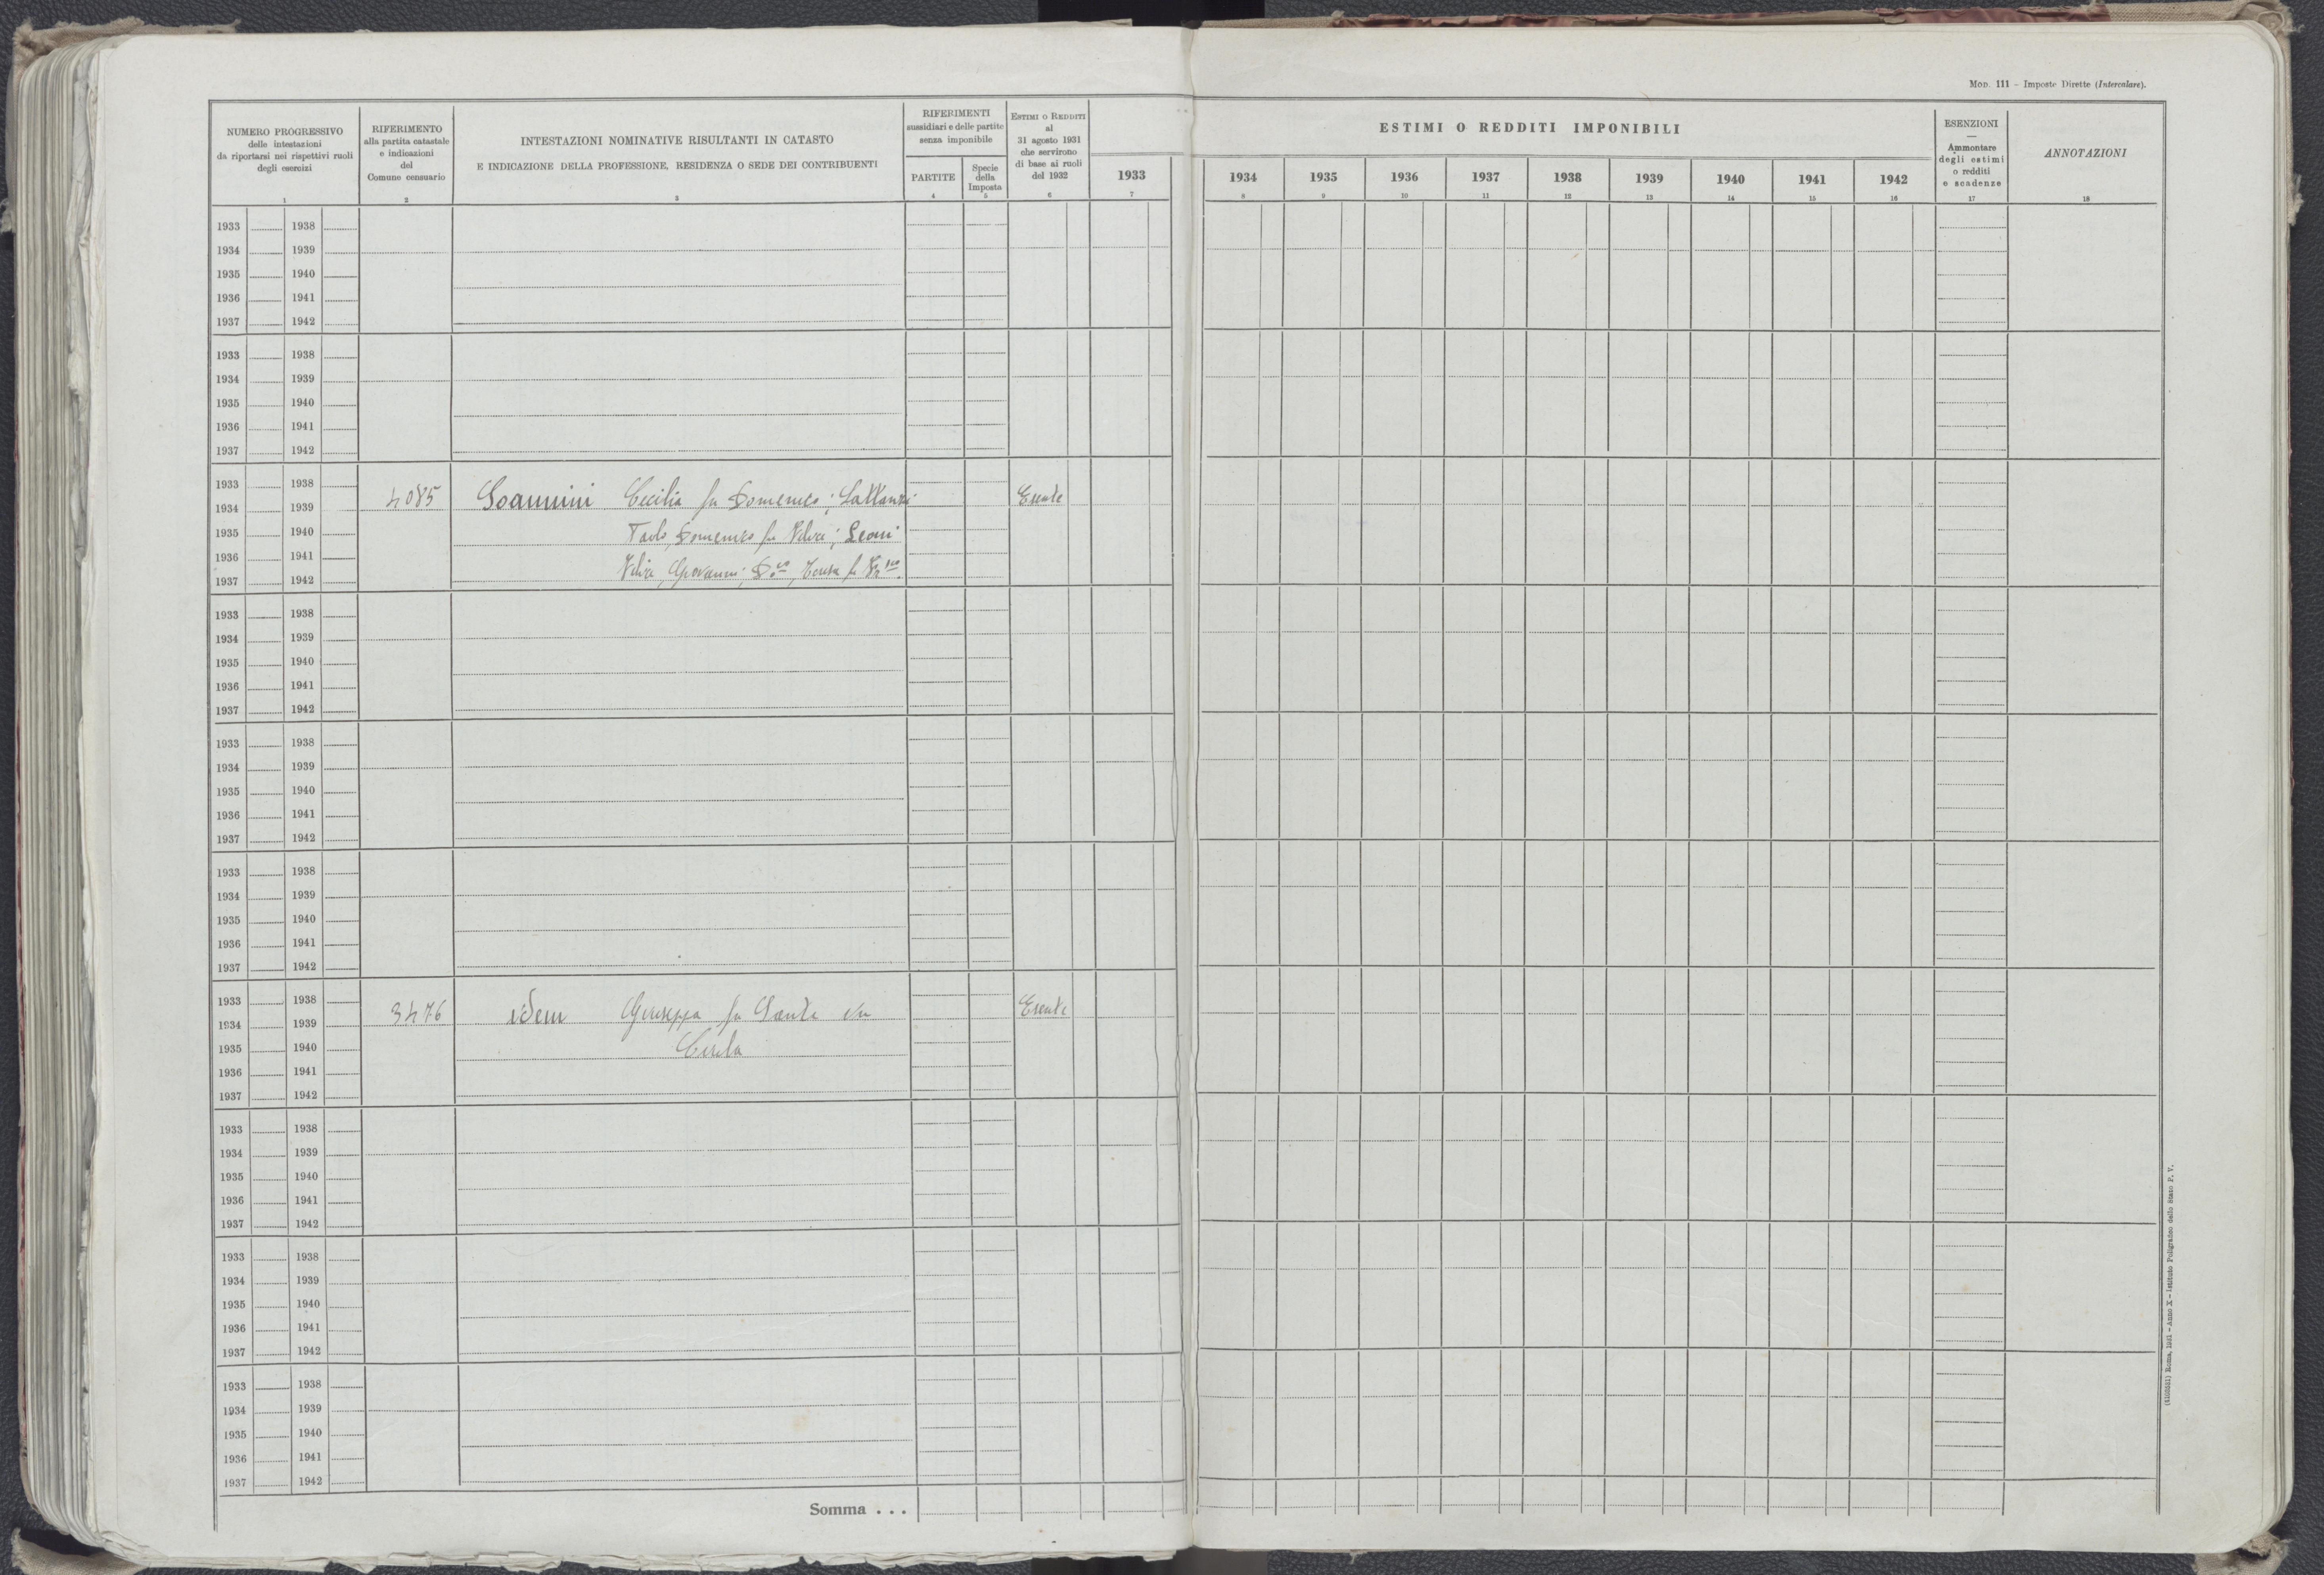 MOD. 111 - Imposte Dirette (Intercalare).
NUMERO PROGRESSIVO
delle intestazioni
da riportarsi nei rispettivi ruoli
degli esercizi
1
RIFERIMENTO
alla partita catastale
e indicazioni
del
Comune censuario
2
INTESTAZIONI NOMINATIVE RISULTANTI IN CATASTO
E INDICAZIONE DELLA PROFESSIONE, RESIDENZA O SEDE DEI CONTRIBUENTI
3
RIFERIMENTI
sussidiari e delle partite
senza imponibile
PARTITE
4
Specie
della
Imposta
5
ESTIMI O REDDITI
al
31 agosto 1931
che servirono
di base ai ruoli
del 1932
6
ESTIMI O REDDITI IMPONIBILI
1933 1934 1935 1936 1937 1938 1939 1940 1941 1942
7 8 9 10 11 12 13 14 15 16
ESENZIONI
—
Ammontare
degli estimi
o redditi
e scadenze
17
ANNOTAZIONI
18
1933 1938
1934 1939
1935 1940
1936 1941
1937 1942
1933 1938
1934 1939
1935 1940
1936 1941
1937 1942
1933 1938
1934 1939 4085 Soannini Cecilia fu Domenico; Lattanzi Esente
1935 1940 Paolo, Domenico fu Felice; Leoni
1936 1941
1937 1942 Felice, Giovanni, D.co, Teresa fu Fr.sco
1933 1938
1934 1939
1935 1940
1936 1941
1937 1942
1933 1938
1934 1939
1935 1940
1936 1941
1937 1942
1933 1938
1934 1939
1935 1940
1936 1941
1937 1942
1933 1938
1934 1939 3476 idem Giuseppa fu Sante in Esente
1935 1940
1936 1941
1937 1942
1933 1938
1934 1939
1935 1940
1936 1941
1937 1942
1933 1938
1934 1939
1935 1940
1936 1941
1937 1942
1933 1938
1934 1939
1935 1940
1936 1941
1937 1942
Somma . . .
Roma, 1931 - Anno X - Istituto Poligrafico dello Stato P. V.